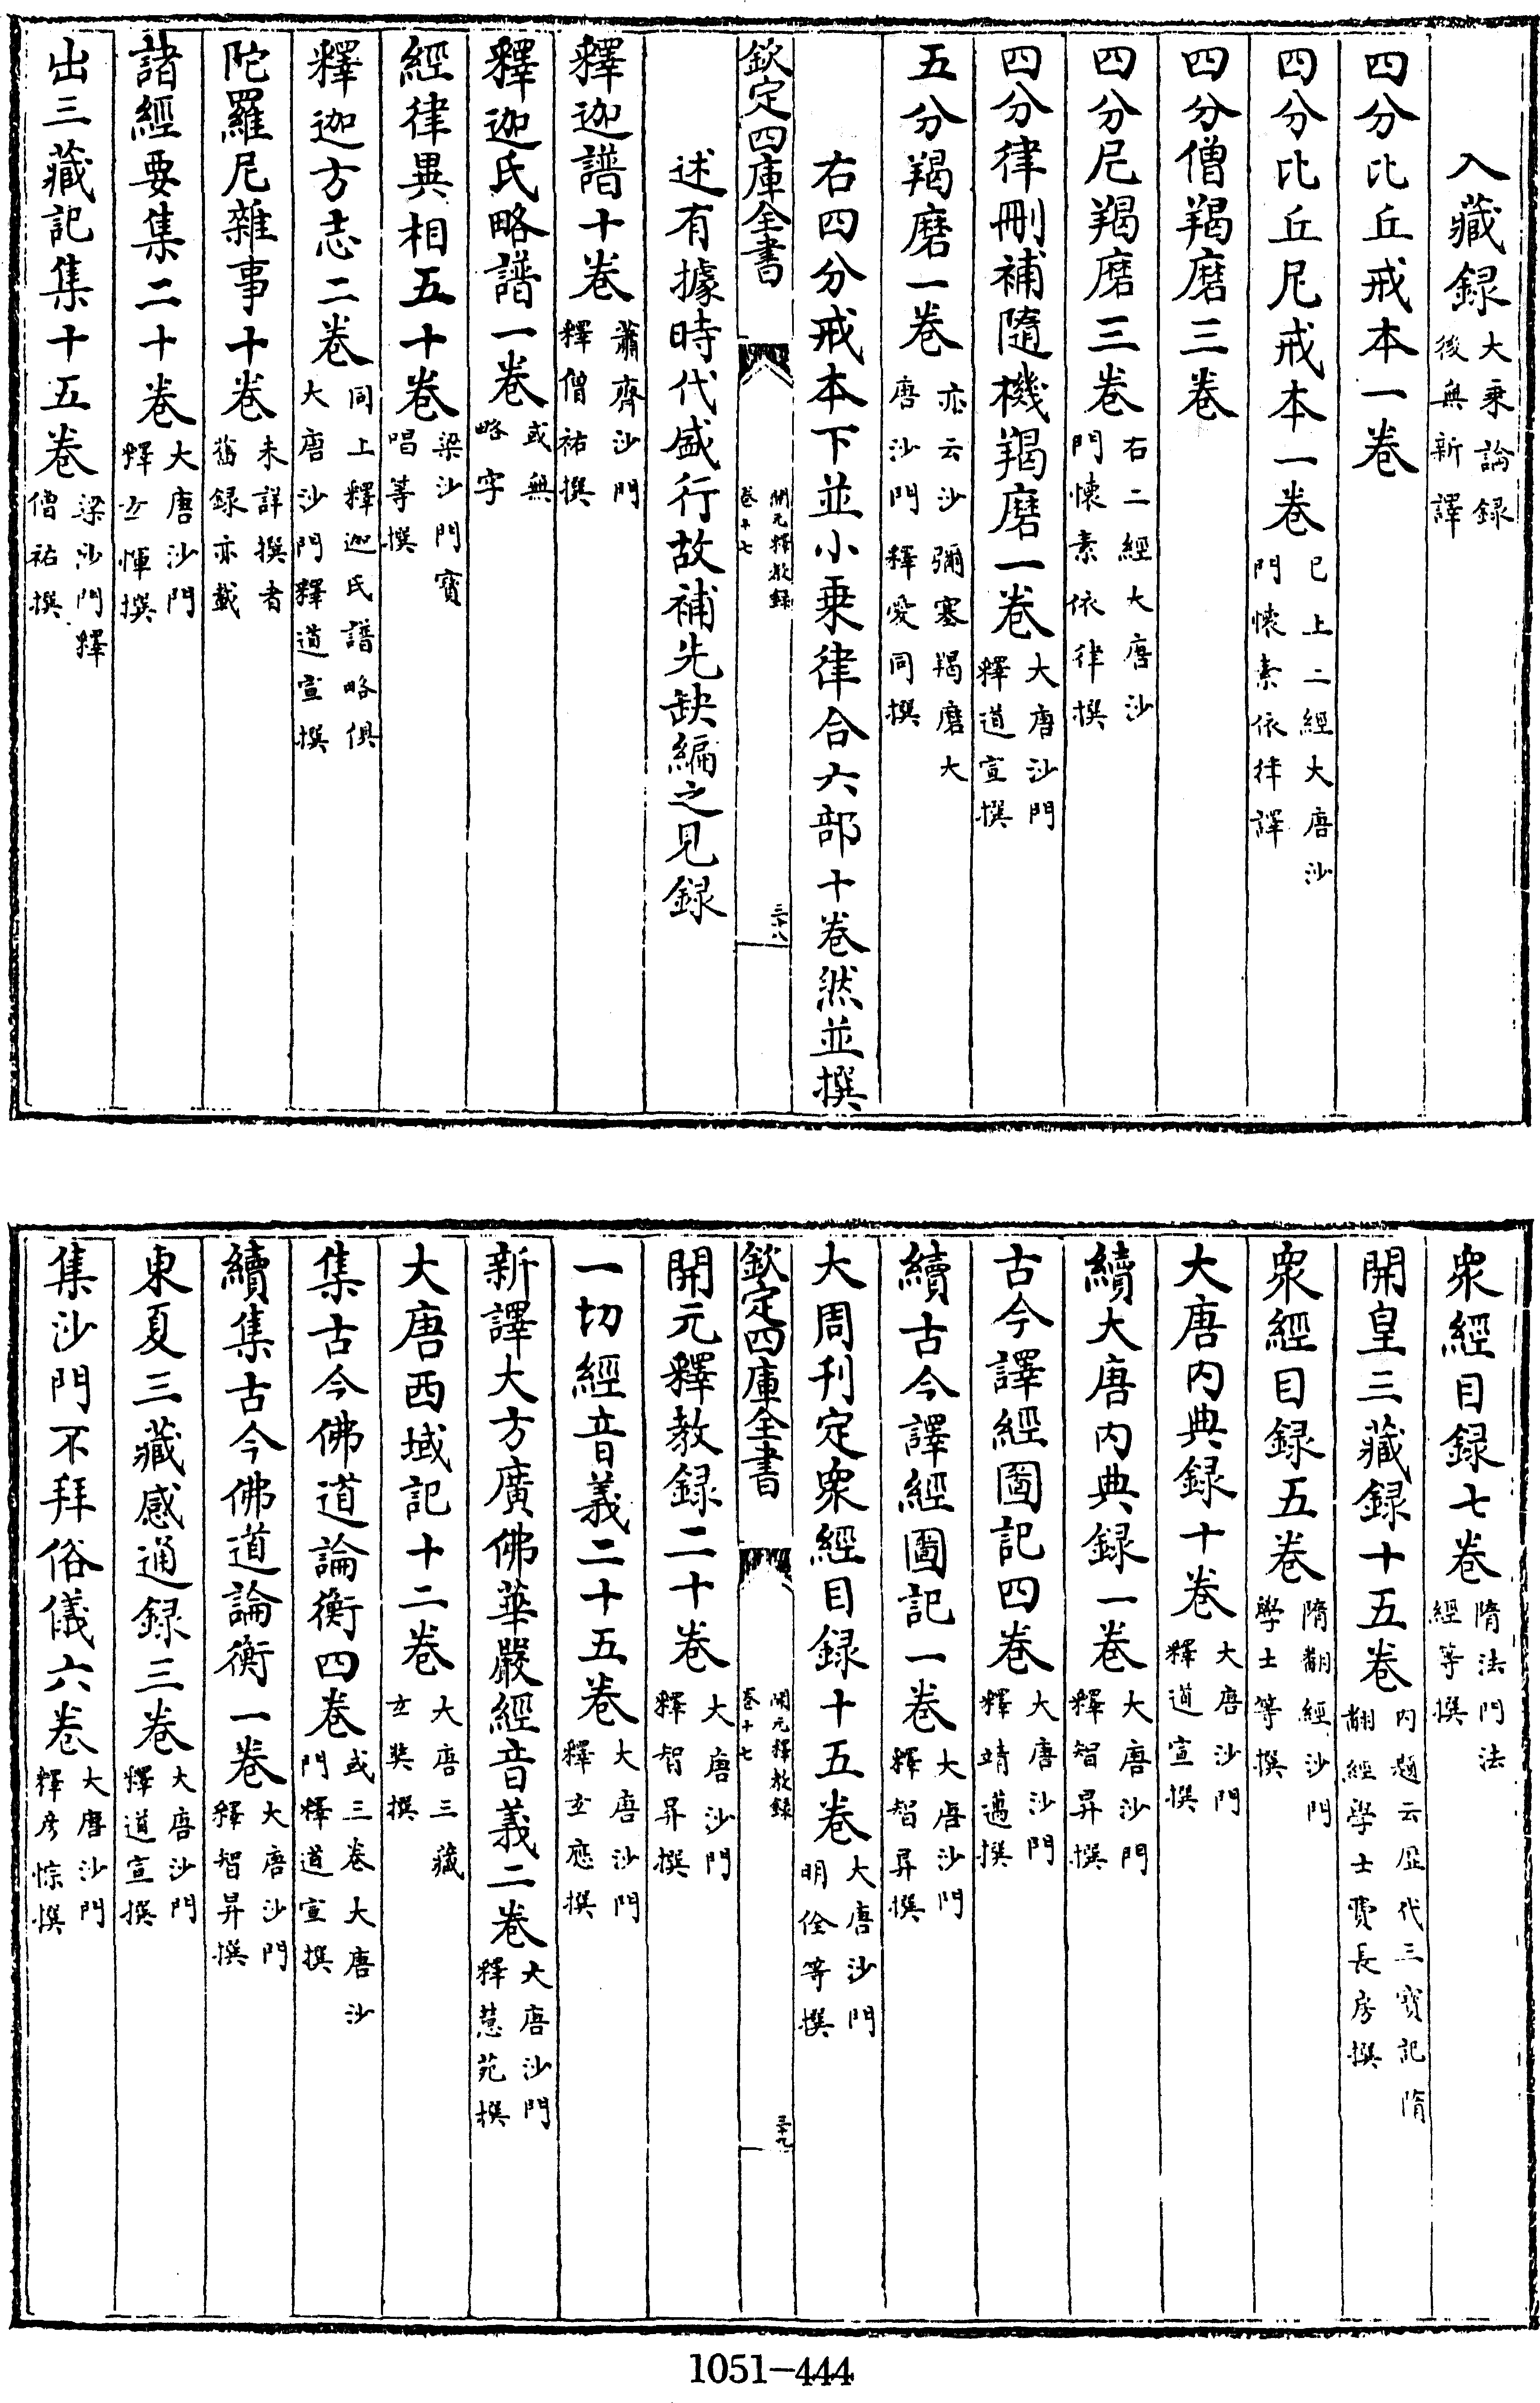 入藏録大乘論録後無新譯
四分比丘戒本一卷
四分比丘尼戒本一卷已上二經大唐沙門懷素依律譯
四分僧羯磨三卷
四分尼羯磨三卷右二經大唐沙門懷素依律撰
四分律刪補隨機羯磨一卷大唐沙門釋道宣撰
五分羯磨一卷亦云沙彌塞羯磨大唐沙門釋愛同撰
右四分戒本下並小乘律合六部十卷然並撰
欽定四庫全書 開元釋教録卷十七 三十八
述有據時代盛行故補先缺編之見録
釋迦譜十卷蕭齊沙門釋僧祐撰
釋迦氏略譜一卷或無略字
經律異相五十卷梁沙門寶唱等撰
釋迦方志二卷同上釋迦氏譜略俱大唐沙門釋道宣撰
陀羅尼雜事十卷未詳撰者舊録亦載
諸經要集二十卷大唐沙門釋玄惲撰
出三藏記集十五卷梁沙門釋僧祐撰
衆經目録七卷隋法門法經等撰
開皇三藏録十五卷内題云歷代三寶記隋翻經學士費長房撰
衆經目録五卷隋翻經沙門學士等撰
大唐内典録十卷大唐沙門釋道宣撰
續大唐内典録一卷大唐沙門釋智昇撰
古今譯經圖記四卷大唐沙門釋靖邁撰
續古今譯經圖記一卷大唐沙門釋智昇撰
大周刊定衆經目録十五卷大唐沙門明佺等撰
欽定四庫全書 開元釋教録卷十七 三十九
開元釋教録二十卷大唐沙門釋智昇撰
一切經音義二十五卷大唐沙門釋玄應撰
新譯大方廣佛華嚴經音義二卷大唐沙門釋慧苑撰
大唐西域記十二卷大唐三藏玄奘撰
集古今佛道論衡四卷或三卷大唐沙門釋道宣撰
續集古今佛道論衡一卷大唐沙門釋智昇撰
東夏三藏感通録三卷大唐沙門釋道宣撰
集沙門不拜俗儀六卷大唐沙門釋彦悰撰
1051-444